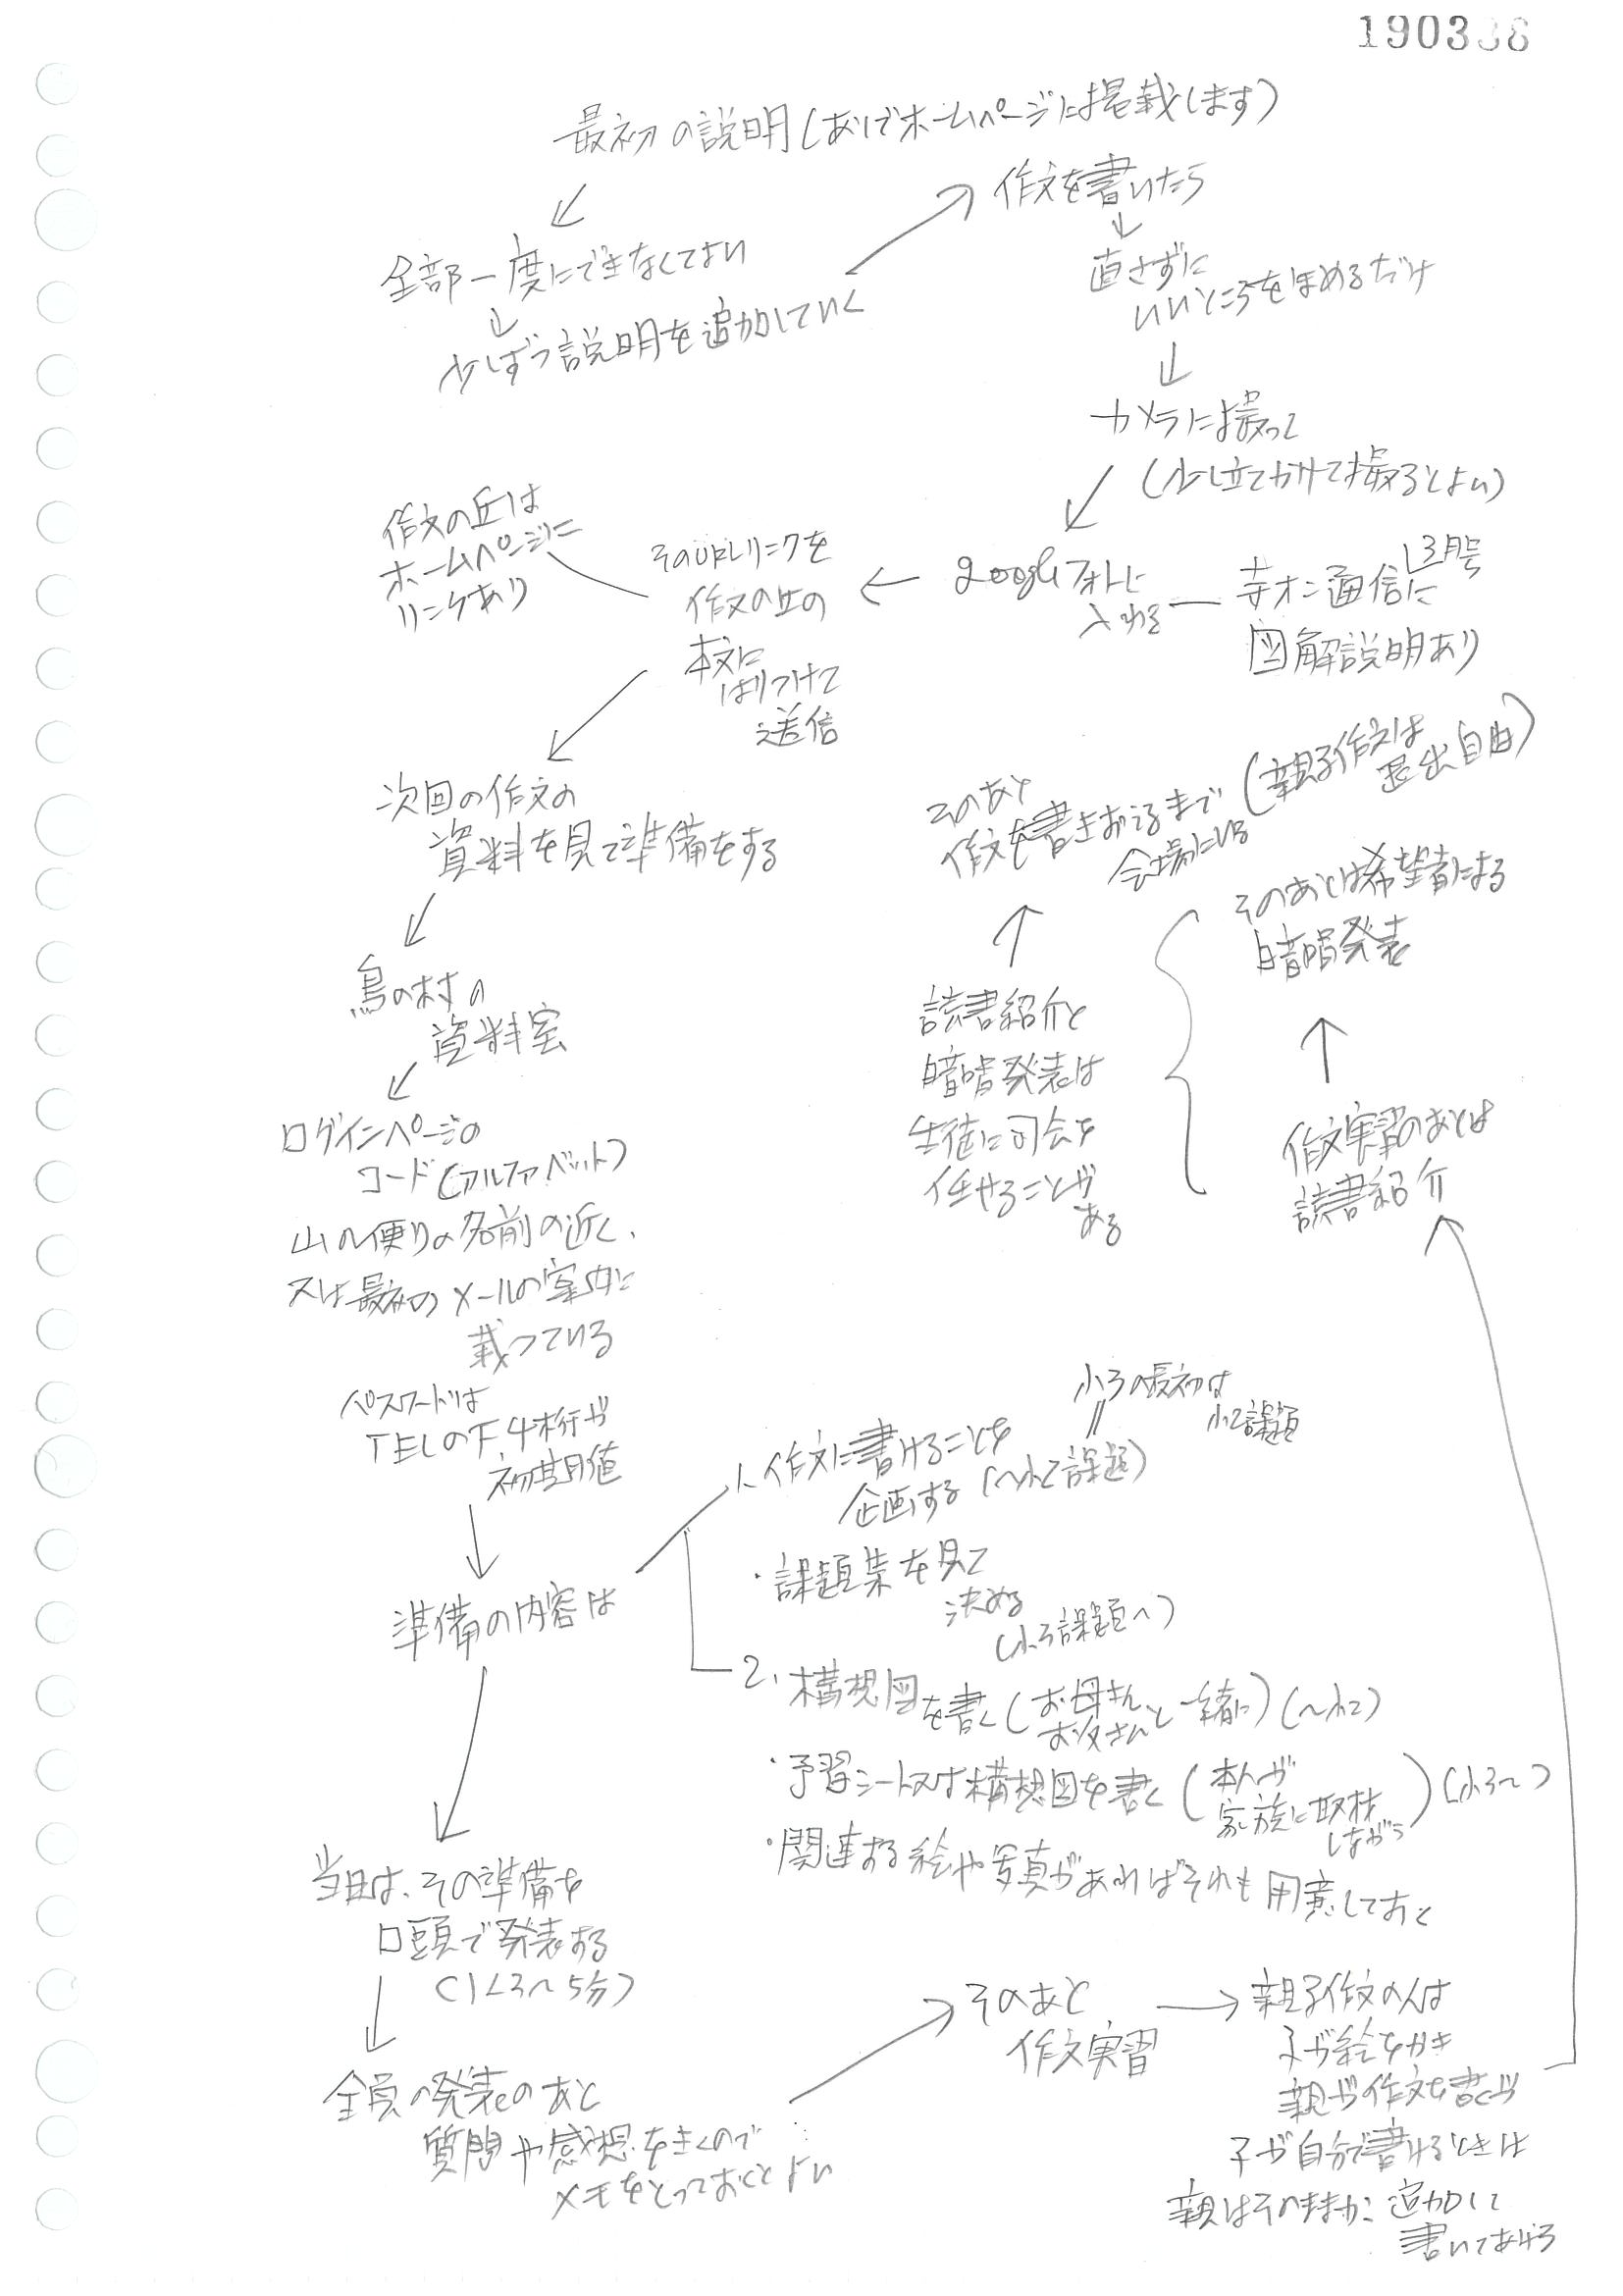 1903
最初の説明(あとでホームページに掲載します)
全部一度にできなくてよい
少しずつ説明を追加していく
作文を書いたら
直さずに
いいところをほめるだけ
カメラに撮って
(に立てかけて撮るとよい)
googleフォトに
入れる
寺オン通信3月号に
図解説明あり
そのURLリンクを
作文の丘の
本文に
はりつけて
送信
作文の丘は
ホームページに
リンクあり
次回の作文の
資料を見て準備をする
鳥の村の
資料室
ログインページの
コード(アルファベット)
山の便りの名前の近く、
又は最初のメールの案内に
載っている
パスワードは
TELの下4桁が
初期値
準備の内容は
1. 作文に書けることを
企画する(〜小2課題)
小3の最初は
小2課題
・課題集を見て
決める
(小3課題〜)
2. 構想図を書く(お母さん、
お父さんと一緒に)(〜小2)
・予習シート又は構想図を書く(本人が
家族に取材
しながら)(小3〜)
・関連する絵や写真があればそれも用意しておく
当日は、その準備を
口頭で発表する
(1人3〜5分)
全員の発表のあと
質問や感想をきくので
メモをとっておくとよい
そのあと
作文実習
親子作文の人は
子が絵をかき
親が作文を書くが
子が自分で書けるときは
親はそのままか追加して
書いてあげる
作文実習のあとは
読書紹介
そのあとは希望者による
暗唱発表
読書紹介と
暗唱発表は
生徒に司会を
任せることが
ある
そのあと
作文を書きおえるまで
会場にいる
(親子作文は
退出自由)